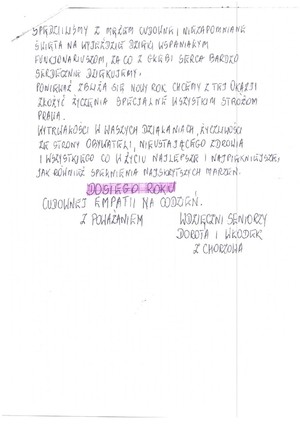 SPĘDZILIŚMY Z MĘŻEM CUDOWNE I NIEZAPOMNIANE
ŚWIĘTA NA WYJEŹDZIE DZIĘKI WSPANIAŁYM
FUNKCJONARIUSZOM, ZA CO Z GŁĘBI SERCA BARDZO
SERDECZNIE DZIĘKUJEMY.
PONIEWAŻ ZBLIŻA SIĘ NOWY ROK CHCEMY Z TEJ OKAZJI
ZŁOŻYĆ ŻYCZENIA SPECJALNE WSZYSTKIM STRÓŻOM
PRAWA.
WYTRWAŁOŚCI W WASZYCH DZIAŁANIACH, ŻYCZLIWOŚCI
ZE STRONY OBYWATELI, NIEUSTAJĄCEGO ZDROWIA
I WSZYSTKIEGO CO W ŻYCIU NAJLEPSZE I NAJPIĘKNIEJSZE,
JAK RÓWNIEŻ SPEŁNIENIA NAJSKRYTSZYCH MARZEŃ.
DOSIEGO ROKU
CUDOWNEJ EMPATII NA CODZIEŃ.
Z POWAŻANIEM WDZIĘCZNI SENIORZY
DOROTA I WŁODEK
Z CHORZOWA